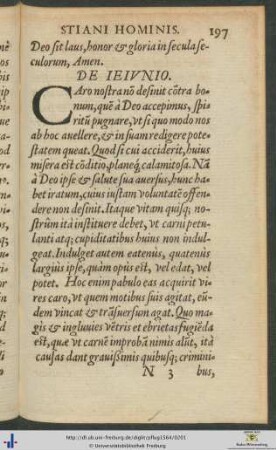 STIANI HOMINIS. 197
Deo sit laus, honor & gloria in secula se-
culorum, Amen.
DE IEIVNIO.
CAro nostra nõ desinit cõtra bo-
num, quẽ à Deo accepimus, spi-
ritũ pugnare, vt si quo modo nos
ab hoc auellere, & in suam redigere pote-
statem queat. Quod si cui acciderit, huius
misera est cõditio, planeq; calamitosa. Nã
à Deo ipse & salute sua auersus, hunc ha-
bet iratum, cuius iustam voluntatẽ offen-
dere non desinit. Itaque vitam quisq; no-
strũm ità instituere debet, vt carni petu-
lanti atq; cupiditatibus huius non indul-
geat. Indulget autem eatenus, quatenus
largiùs ipse, quàm opus est, vel edat, vel
potet. Hoc enim pabulo eas acquirit vi-
res caro, vt quem motibus suis agitat, eũ-
dem vincat & trãsuersum agat. Quo ma-
gis & ingluuies vẽtris et ebrietas fugiẽda
est, quæ vt carnẽ improbã nimis alũt, ità
causas dant grauißimis quibusq; crimini-
N 3 bus,
http://dl.ub.uni-freiburg.de/diglit/pflug1564/0201
© Universitätsbibliothek Freiburg